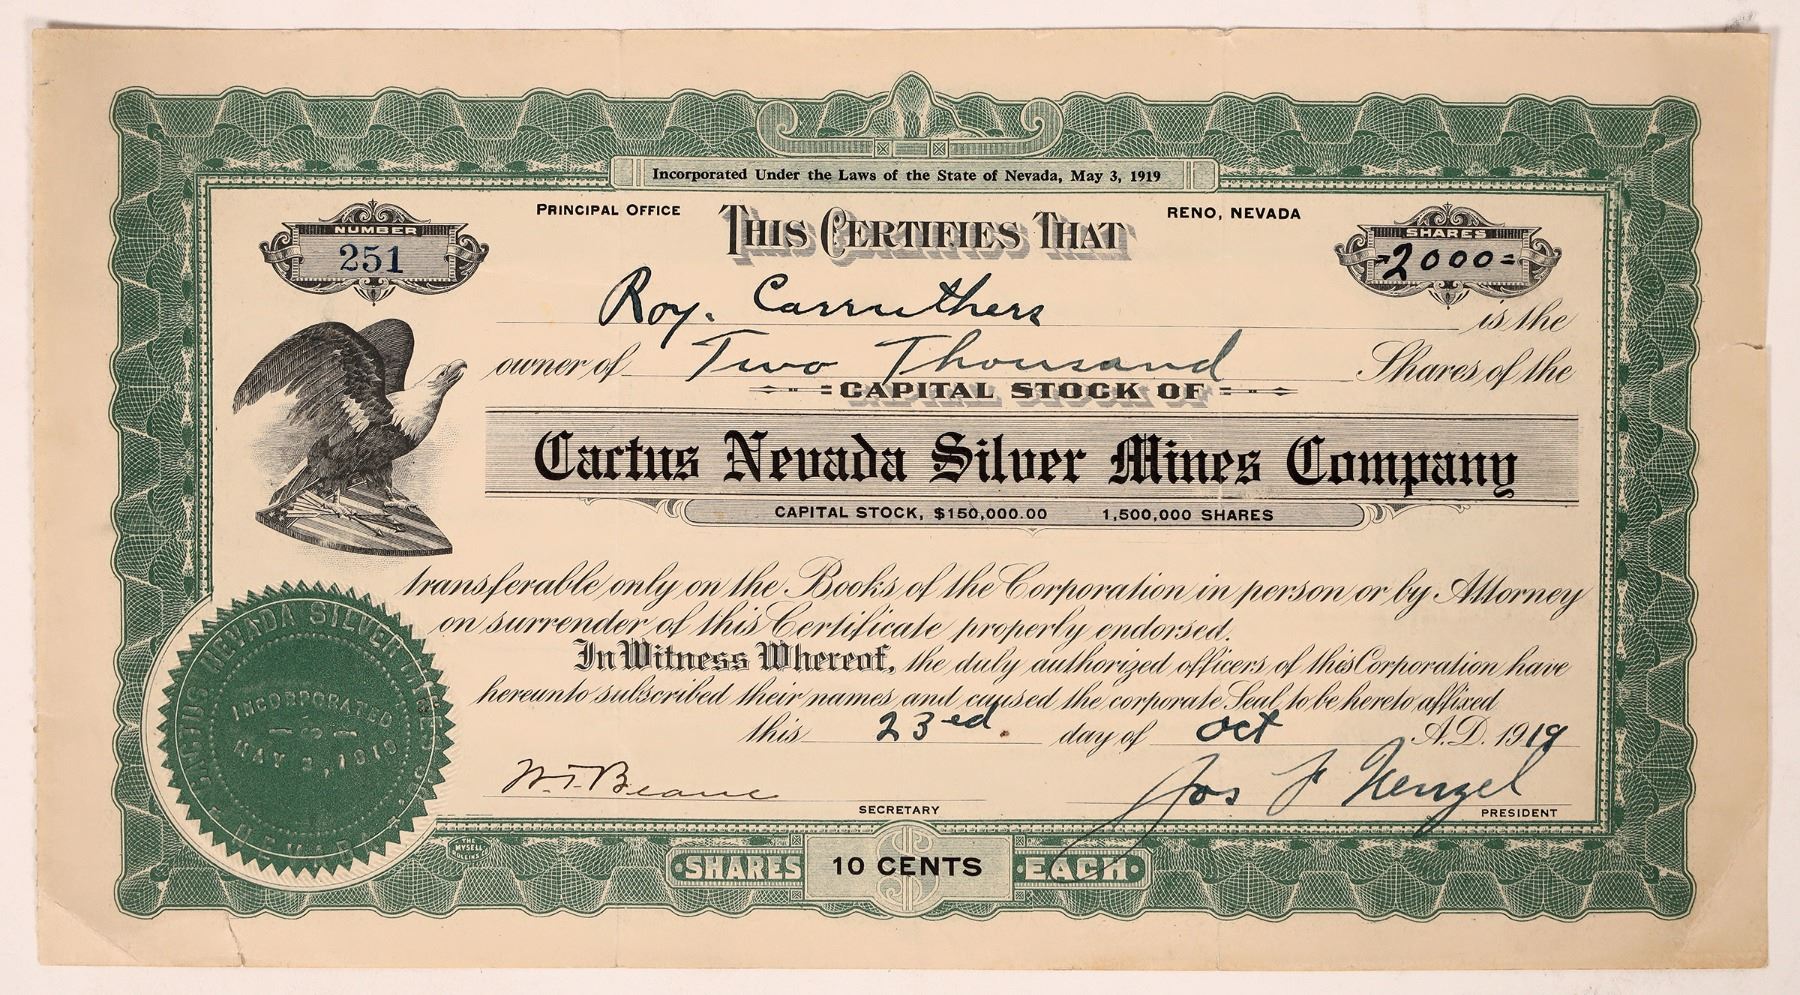 Incorporated Under the Laws of the State of Nevada, May 3, 1919
PRINCIPAL OFFICE
RENO, NEVADA
THIS CERTIFIES THAT
NUMBER
251
SHARES
2000=
Roy. Carruthers is the
owner of Two Thousand Shares of the
CAPITAL STOCK OF
Cactus Nevada Silver Mines Company
CAPITAL STOCK, $150,000.00 1,500,000 SHARES
transferable only on the Books of the Corporation in person or by Attorney
on surrender of this Certificate properly endorsed.
In Witness Whereof, the duly authorized officers of this Corporation have
hereunto subscribed their names and caused the corporate Seal to be hereto affixed
this 23ed day of Oct A.D. 1919
CACTUS NEVADA SILVER MINES CO.
INCORPORATED
MAY 3, 1919
NEVADA
W. T. Beane
SECRETARY
Jos F
PRESIDENT
THE
MYSELL
ROLLINS
SHARES 10 CENTS EACH